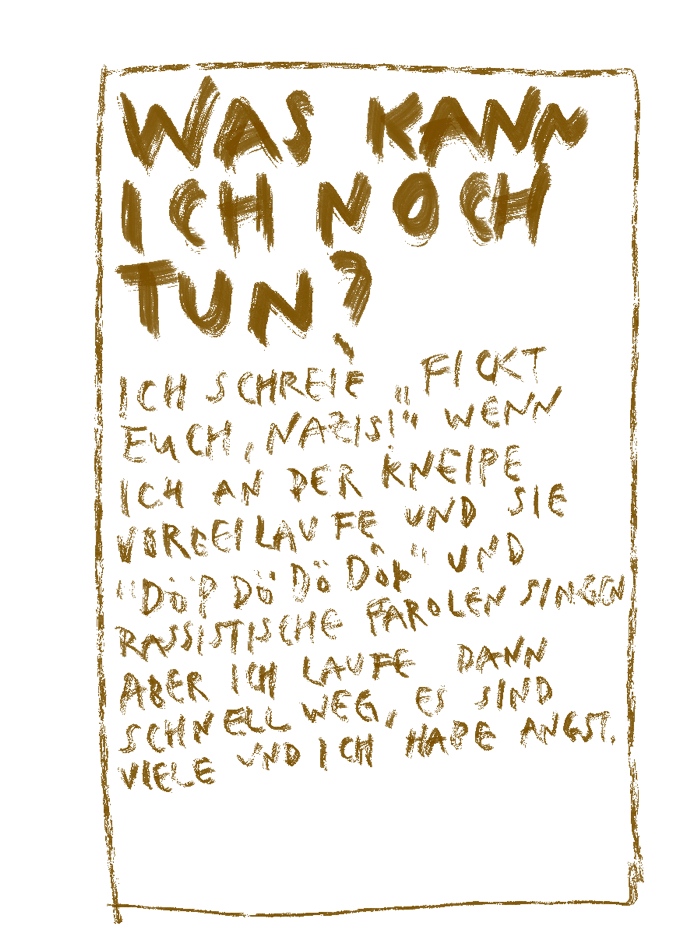 WAS KANN
ICH NOCH
TUN?
ICH SCHREIE „FICKT
EUCH, NAZIS!“ WENN
ICH AN DER KNEIPE
VORBEILAUFE UND SIE
"DÖP DÖ DÖ DÖP" UND
RASSISTISCHE PAROLEN SINGEN
ABER ICH LAUFE DANN
SCHNELL WEG, ES SIND
VIELE UND ICH HABE ANGST.